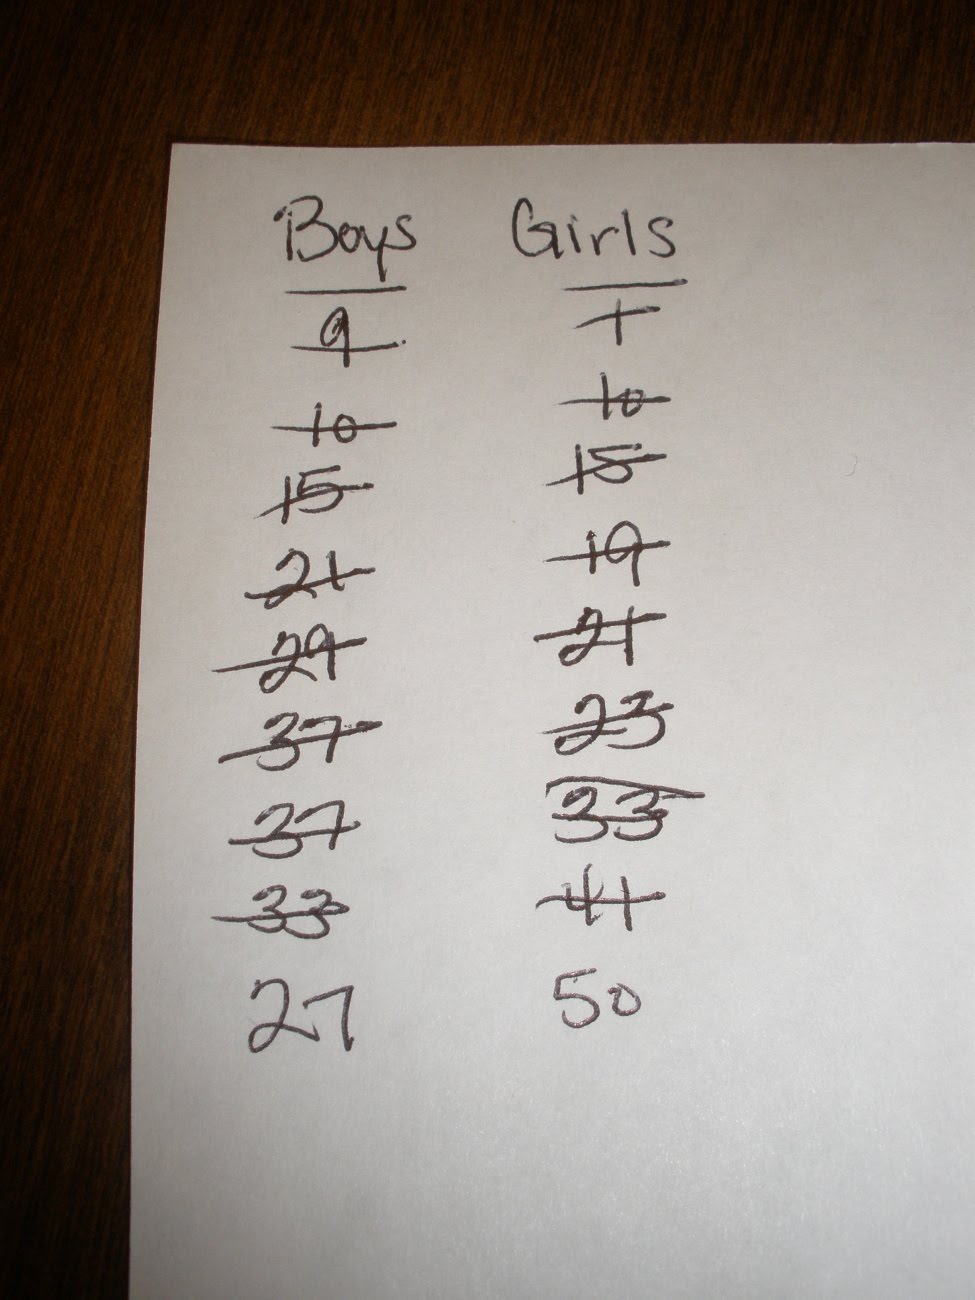 Boys Girls
9 1
10 10
15 15
21 19
29 21
37 23
37 33
33 41
27 50